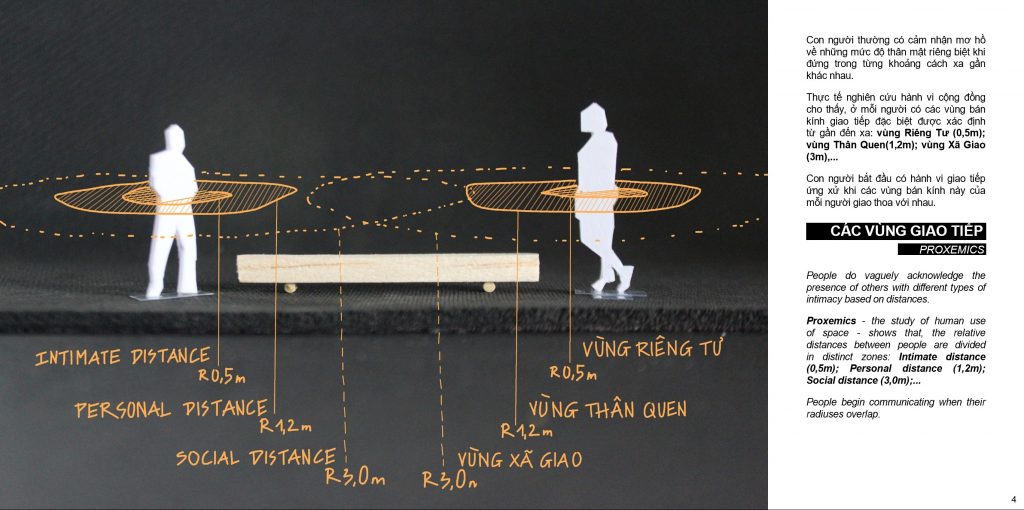 INTIMATE DISTANCE
R0,5m
PERSONAL DISTANCE
R1,2m
SOCIAL DISTANCE
R3,0m
VÙNG RIÊNG TƯ
R0,5m
VÙNG THÂN QUEN
R1,2m
VÙNG XÃ GIAO
R3,0m
Con người thường có cảm nhận mơ hồ
về những mức độ thân mật riêng biệt khi
đứng trong từng khoảng cách xa gần
khác nhau.
Thực tế nghiên cứu hành vi cộng đồng
cho thấy, ở mỗi người có các vùng bán
kính giao tiếp đặc biệt được xác định
từ gần đến xa: vùng Riêng Tư (0,5m);
vùng Thân Quen(1,2m); vùng Xã Giao
(3m),...
Con người bắt đầu có hành vi giao tiếp
ứng xử khi các vùng bán kính này của
mỗi người giao thoa với nhau.
CÁC VÙNG GIAO TIẾP
PROXEMICS
People do vaguely acknowledge the
presence of others with different types of
intimacy based on distances.
Proxemics - the study of human use
of space - shows that, the relative
distances between people are divided
in distinct zones: Intimate distance
(0,5m); Personal distance (1,2m);
Social distance (3,0m);...
People begin communicating when their
radiuses overlap.
4